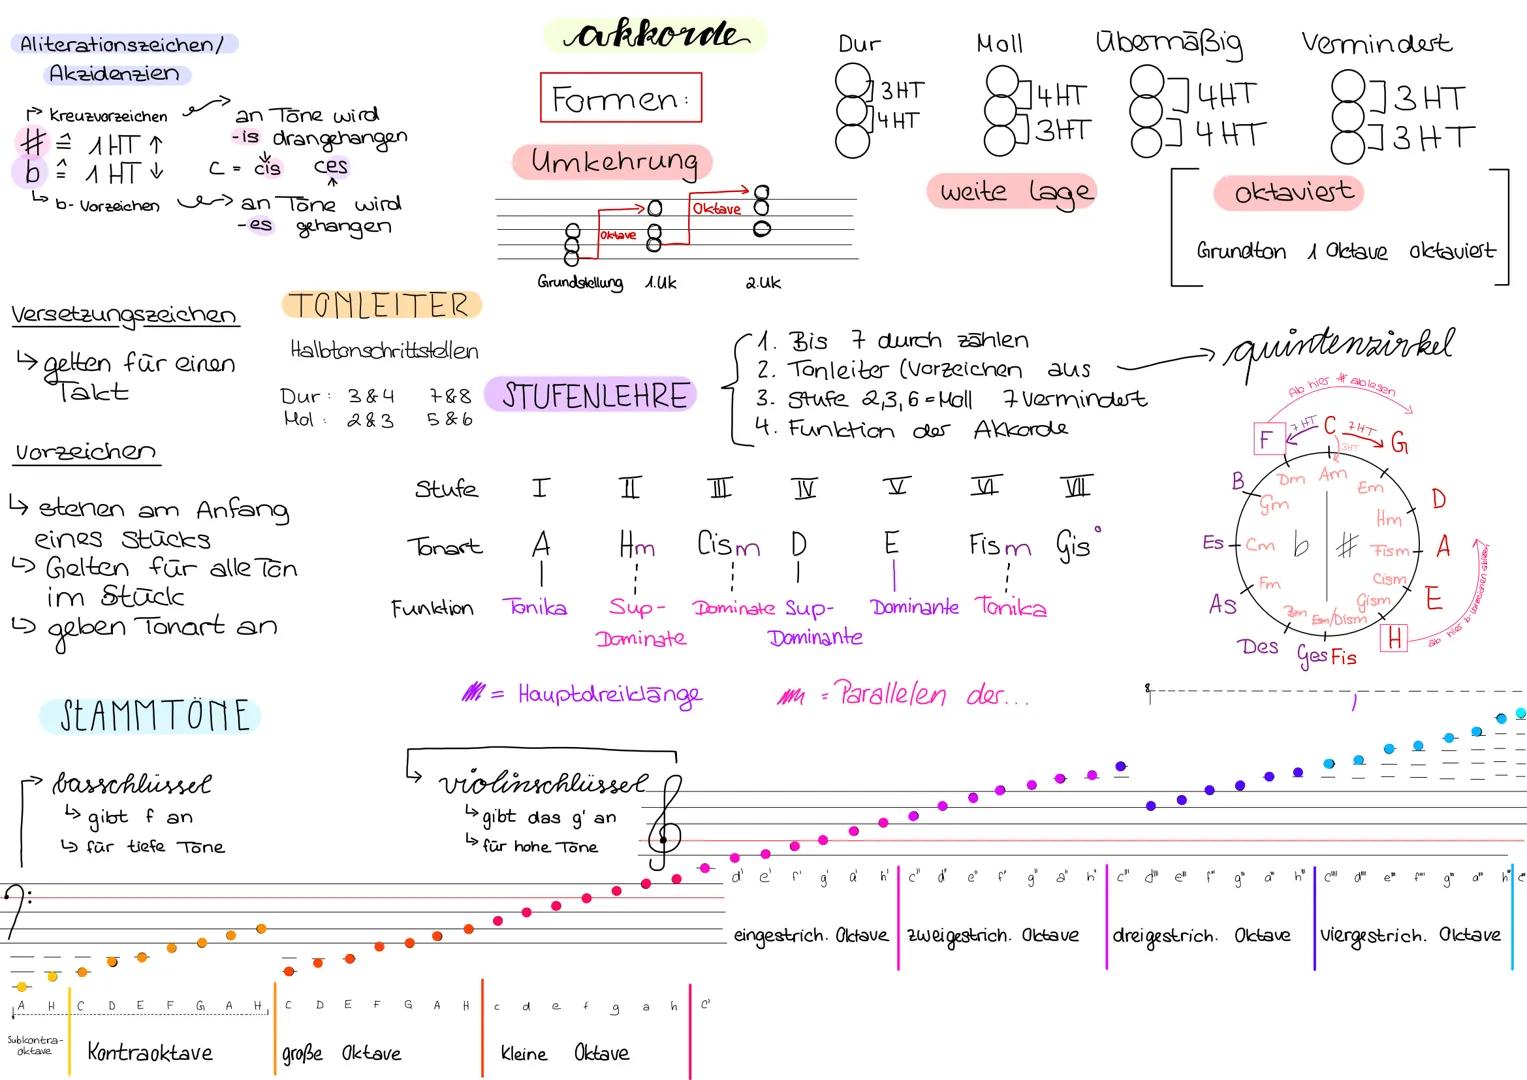 Aliterationszeichen/
Akzidenzien
Kreuzvorzeichen
# ≙ 1 HT ↑
b ≙ 1 HT ↓
b-Vorzeichen
an Töne wird
-is drangehangen
C = cis ces
an Töne wird
-es gehangen
akkorde
Formen:
Umkehrung
Oktave
Oktave
Grundstellung 1.UK 2.UK
Dur Moll Übermäßig Vermindert
3HT 4HT 4HT 3HT
4HT 3HT 4HT 3HT
weite Lage
oktaviert
Grundton 1 Oktave oktaviert
Versetzungszeichen
↳ gelten für einen
Takt
TONLEITER
Halbtonschrittstellen
Dur: 3&4 7&8
Mol: 2&3 5&6
Vorzeichen
↳ stehen am Anfang
eines Stücks
↳ Gelten für alle Ton
im Stück
↳ geben Tonart an
STUFENLEHRE
1. Bis 7 durch zählen
2. Tonleiter (Vorzeichen aus
3. Stufe 2,3,6 = Moll 7 Vermindert
4. Funktion der Akkorde
quintenzirkel
Ab hier # ablesen
F 7HT C 7HT G
3HT
B Dm Am Em D
Gm Hm
Es Cm b # Fism A
Fm Cism
As Bm Esm/Dism Gism E
Des Ges Fis H
ab hier b-Vorzeichen ablesen
Stufe I II III IV V VI VII
Tonart A Hm Cism D E Fism Gis°
Funktion Tonika Sup- Dominate Sup- Dominante Tonika
Dominate Dominante
= Hauptdreiklänge = Parallelen der...
STAMMTÖNE
basschlüssel
↳ gibt f an
↳ für tiefe Töne
violinschlüssel
↳ gibt das g' an
↳ für hohe Töne
8
d' e' f' g' a' h' c'' d'' e'' f'' g'' a'' h'' c''' d''' e''' f''' g''' a''' h''' c'''' d'''' e'''' f'''' g'''' a'''' h''''
eingestrich. Oktave zweigestrich. Oktave dreigestrich. Oktave viergestrich. Oktave
A H C D E F G A H C D E F G A H c d e f g a h c'
Subkontra-
oktave
Kontraoktave große Oktave kleine Oktave